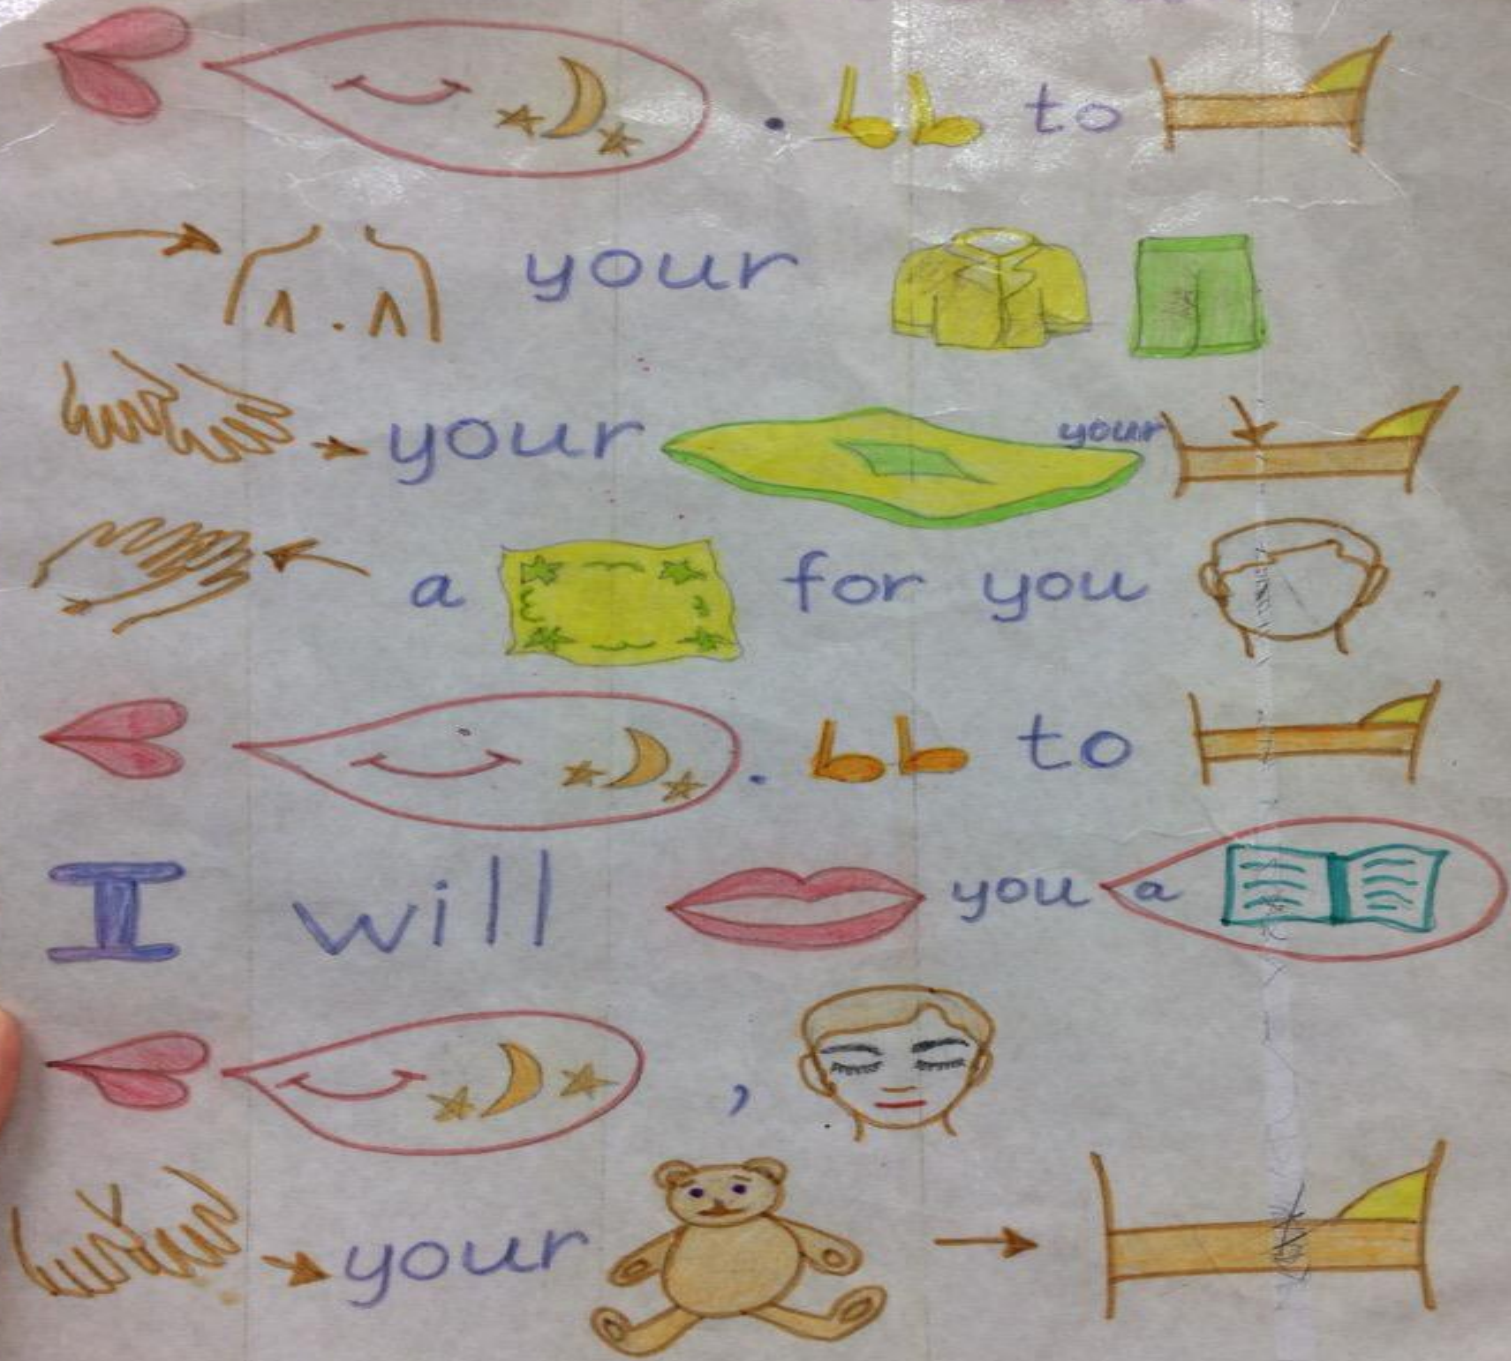 . to
your
your your
a for you
. to
I will you a
,
your